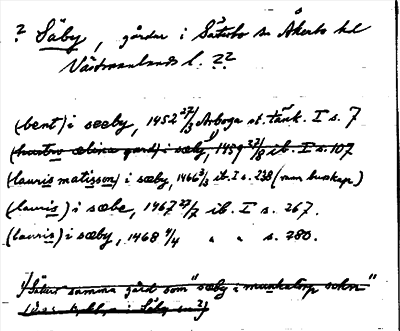 ? Säby, gårdar i Säterbo sn Åkerbo hd
Västmanlands l. ??
(bent) i sæby, 1452 27/3 Arboga st. tänk. I s. 7
(hustro elina gard) i sæby 1), 1459 22/8 ib. I s. 107
(lauris matisson) i sæby, 1466 3/3 ib. I s. 238 (
(lauris) i sæbe, 1467 27/7 ib. I s. 267.
(lauris) i sæby, 1468 4/4 " " s. 280.
1) samma gård som "sæby i munkatorp sokn"
i Säby